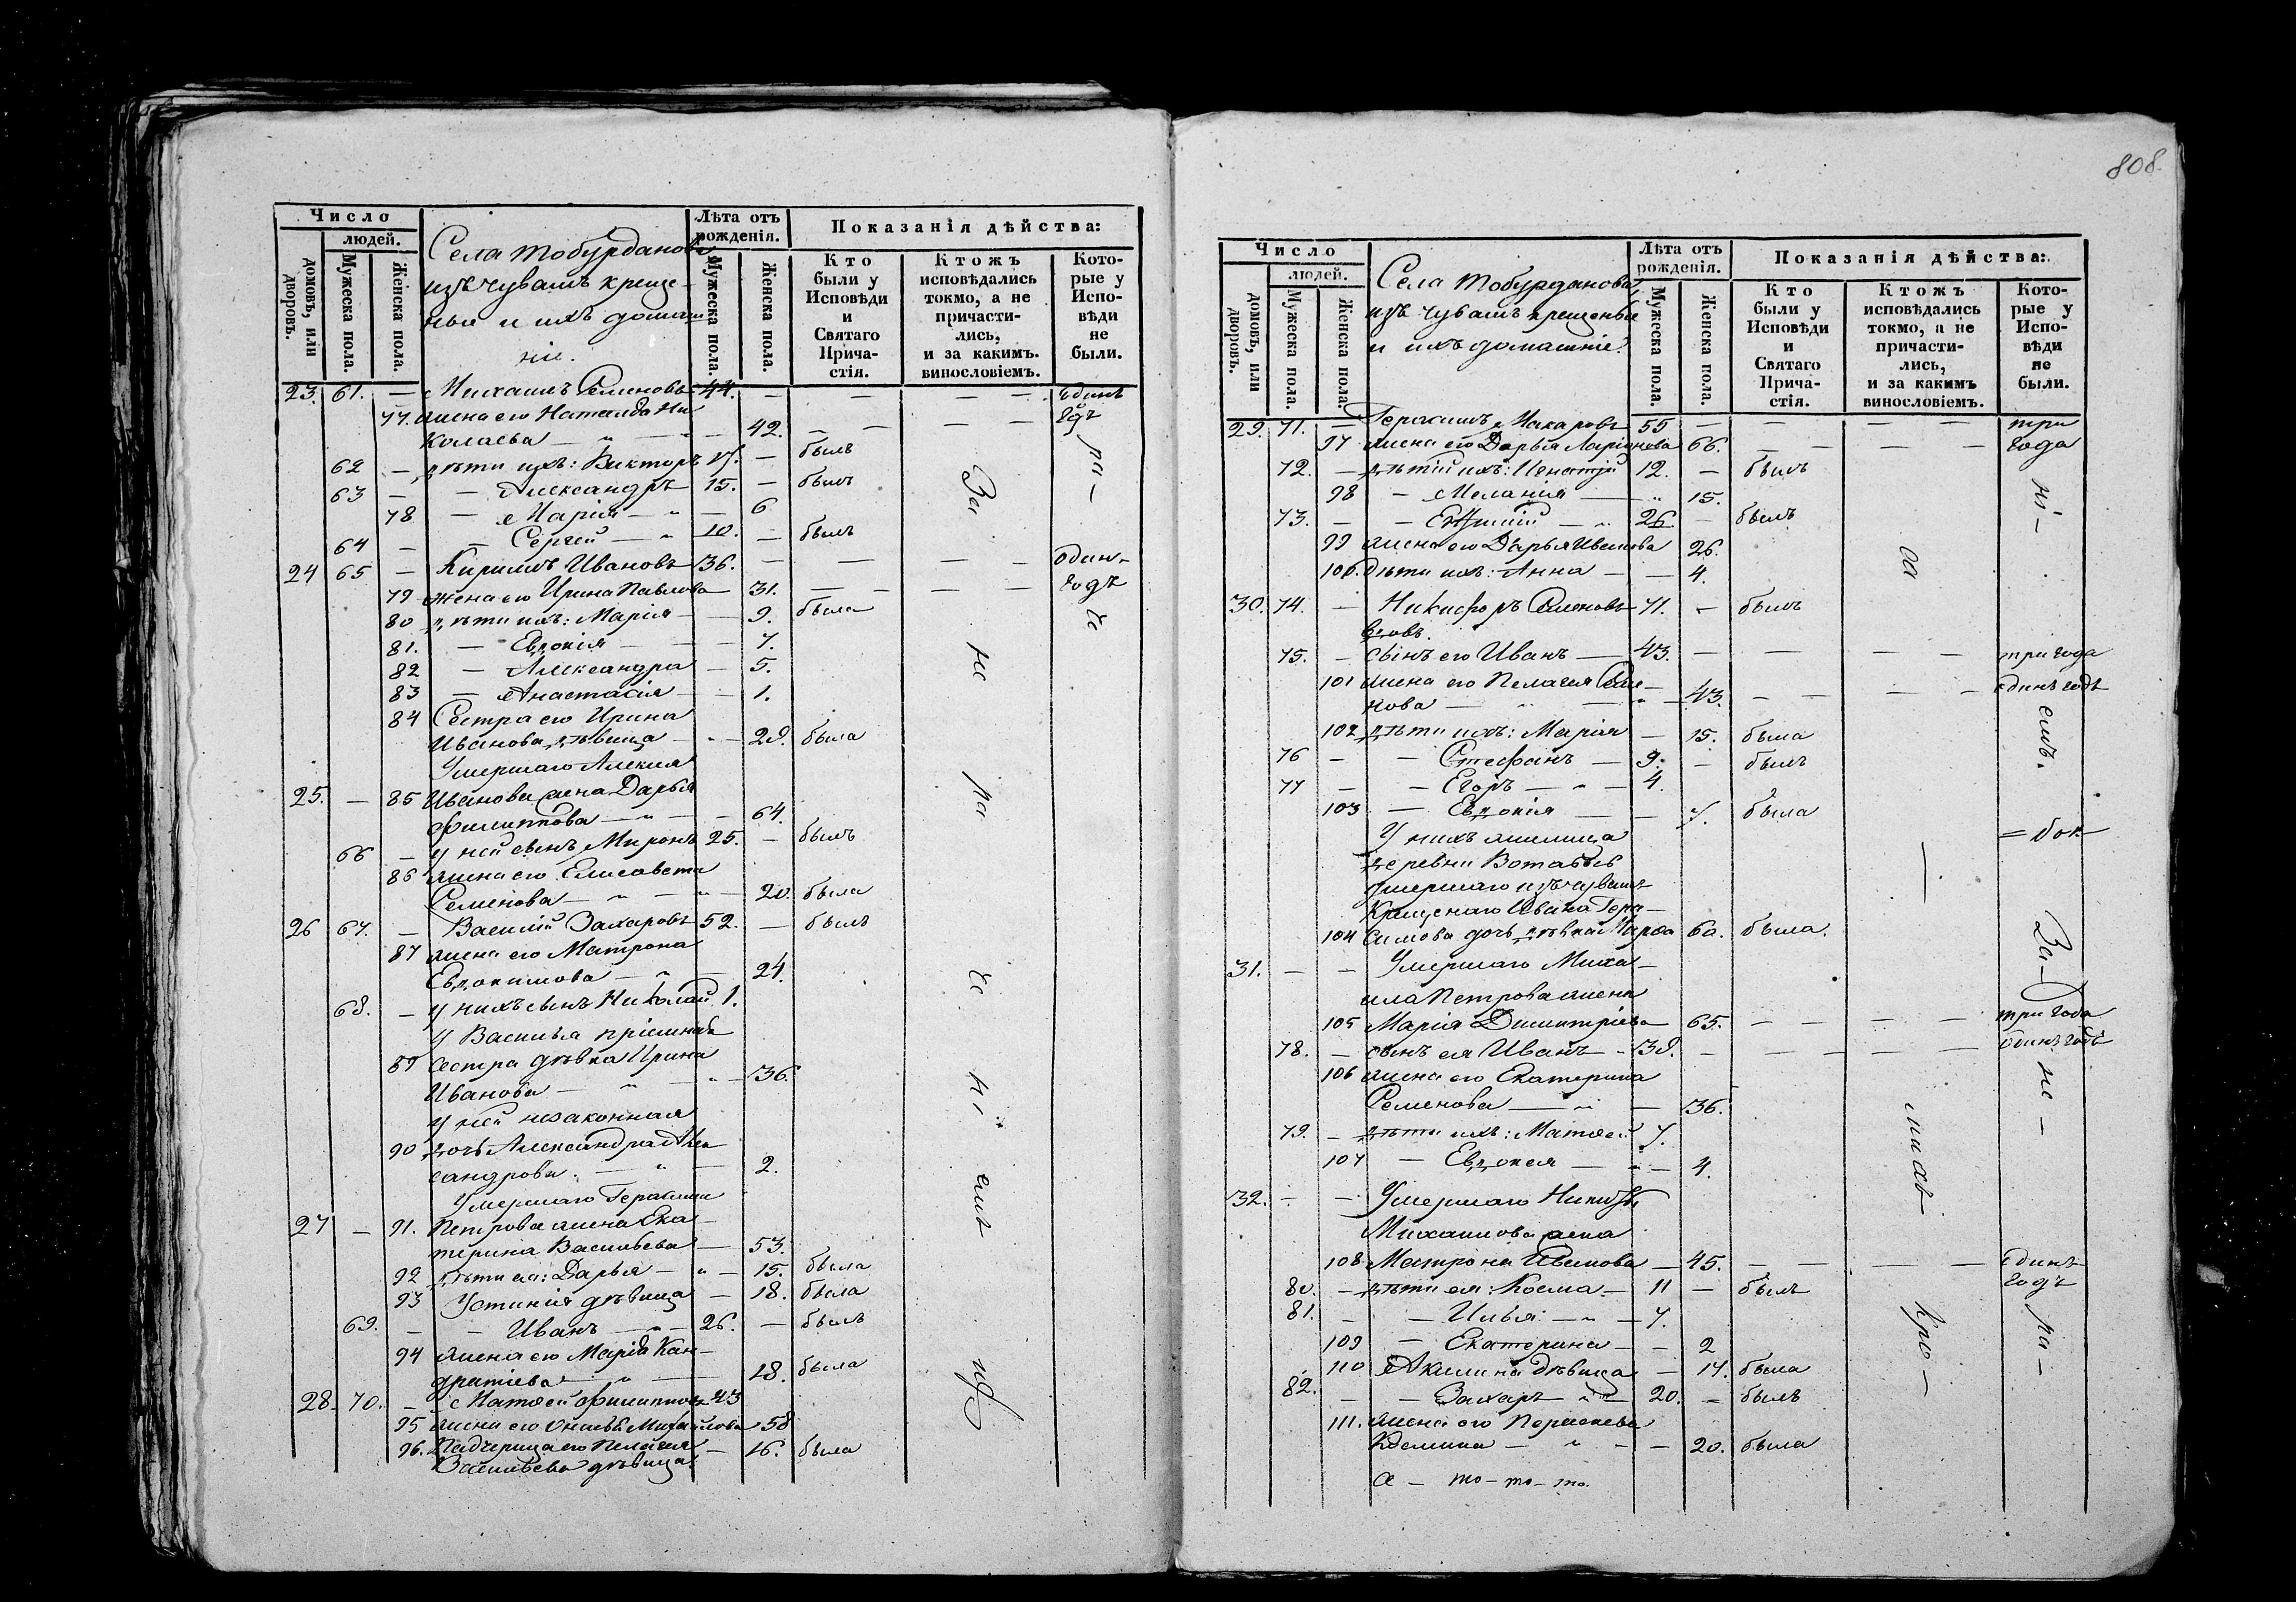 Число
людей.
домовъ, или дворовъ.
Мужеска пола.
Женска пола.
Села Тобурданова
изъ чувашъ креще-
ныя и ихъ домаш
ніе.
Лѣта отъ рожденія.
Мужеска пола.
Женска пола.
Показанія дѣйства:
Кто были у Исповѣди и Святаго Прича-стія.
Ктожъ исповѣдались токмо, а не причасти-лись, и за какимъ. винословіемъ.
Кото-рые у Испо-вѣди не были.
23. 61. — Михаилъ Семеновъ 44. — — — — одинъ
77. жена его Наталья Ни годъ
колаева — „ — 42. — — — —
62 — дѣти ихъ: Викторъ — былъ
63 — — Александръ 15. — былъ
78 — Марія — „ — 6
64 — — Сергей — „ 10. — былъ
24 65 — Кирилъ Ивановъ 36. — — — — одинъ
79 жена его Ирина Павлова 31. — — — — годъ
80 дѣти ихъ: Марія — — 9. была
81. — Евдокія — — 7.
82 — Александра — 5.
83 — Анастасія — — 1.
84 Сестра его Ирина
Иванова дѣвица — „ — 28. была
Умершаго Алексея
25. — 85 Иванова жена Дарья
Филиппова — „ — — 64.
66 — у ней сынъ Миронъ 25. — былъ
86 жена его Елисавета
Семенова — „ — „ — 20. была
26 67. — Василій Захаровъ 52. — былъ
87 жена его Матрона
Евдокимова — „ — 24.
68. — у нихъ сынъ Николай 1.
У Василья пріемная
89 сестра дѣвка Ирина
Иванова — „ — „ — 36.
у ней незаконная
90 дочь Александра Алек
сандрова. — „ — 2.
Умершаго Герасима
27 — 91. Петрова жена Ека-
терина Васильева — 53.
92 дѣти ея: Дарья — „ — 15. была
93 Устинія дѣвица — 18. была
69. — — Иванъ — „ — 26. — былъ
94 жена его Марія Кан-
дратіева — „ — 18. была
28. 70. — Матѳей Филипповъ 43
95 жена его Михайлова 58
96. Падчерица его Пелагея — 16. была
Васильева дѣвица.
За
не
ра
че
ні
емъ
ра-
че
808.
Число
людей.
домовъ, или дворовъ.
Мужеска пола.
Женска пола.
Села Тобурданова
изъ чувашъ крещеные
и ихъ домашніе.
Лѣта отъ рожденія.
Мужеска пола.
Женска пола.
Показанія дѣйства:
Кто были у Исповѣди и Святаго Прича-стія.
Ктожъ исповѣдались токмо, а не причасти-лись, и за какимъ винословіемъ.
Кото-рые у Испо-вѣди не были.
29. 71. — Герасимъ Макаровъ 55 — — — — три
97 жена его Дарья Ларіонова 66. — — — — года
72. — дѣтей ихъ: Игнатій 12. — былъ
98 — Меланія — „ 15.
73. — — — „ 26. — былъ
99 жена его Дарья Иванова 26.
100. дѣти ихъ: Анна — — 4.
30. 74. — Никифоръ Семеновъ 71. — былъ
вдовъ.
75. — сынъ его Иванъ — 43. — — — — три года
101 жена его Пелагея Семе-
нова — „ — „ — 43. — — — — одинъ годъ
102 дѣти ихъ: Марія — 15. была
76 — — Стефанъ — 9. — былъ
77 — — Егоръ — „ — 4.
103 — Евдокія — — 7. была
У нихъ жилица
деревни
умершаго изъ чувашъ
крещенаго Ивана Гера-
104 симова дочь дѣвка Марѳа 60. была.
31. — — Умершаго Миха-
ила Петрова жена
105 Марія Димитріева 65. — — — — три года
78. — сынъ ея Иванъ „ 38. — — — — одинъ годъ
106 жена его Екатерина
Семенова — „ — 36.
79. — дѣти ихъ: Матѳей 7.
107 — Евдокея — „ — 4.
32. — — Умершаго Никиты
Михаилова жена
108 Матрона Иванова — 45. — — — — одинъ
80. — дѣти ея: Косма — 11 — былъ годъ
81. — — Илья — „ — 7.
109 — Екатерина — — 2
110 Акилина дѣвица — 17. была
82. — — Захаръ „ — 20. — былъ
111. жена его
Козмина — „ — — 20. была
ні-
емъ.
За-
не-
ра-
а — то-то-то.